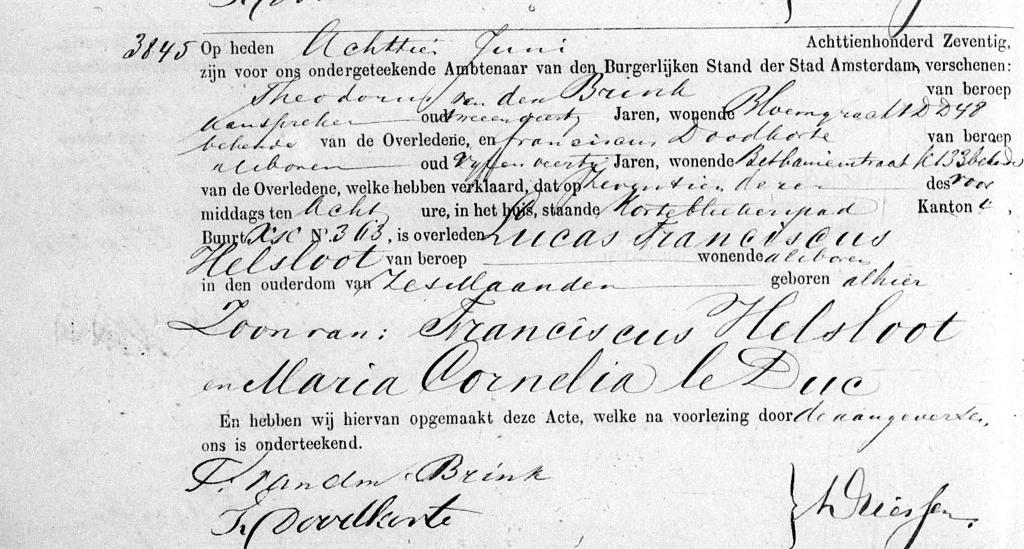 3845 Op heden Achttien Juni Achttienhonderd Zeventig,
zijn voor ons ondergeteekende Ambtenaar van den Burgerlijken Stand der Stad Amsterdam, verschenen:
Theodorus van den Brink van beroep
aanspreker oud tweeenveertig Jaren, wonende Bloemgracht DD 48
bekende van de Overledene, en franciscus Doodkorte van beroep
alsboven oud vyfenveertig Jaren, wonende Bethanienstraat K 133 bekende
van de Overledene, welke hebben verklaard, dat op Zeventien dezer des voor
middags ten Acht ure, in het huis, staande Korte bleekerspad Kanton 4,
Buurt No. 363, is overleden Lucas Franciscus
Helsloot van beroep wonende alsboven
in den ouderdom van Zes Maanden geboren alhier
Zoon van: Franciscus Helsloot
en Maria Cornelia le Duc
En hebben wij hiervan opgemaakt deze Acte, welke na voorlezing door de aangevers en
ons is onderteekend.
T. van den Brink
Fr Doodkorte